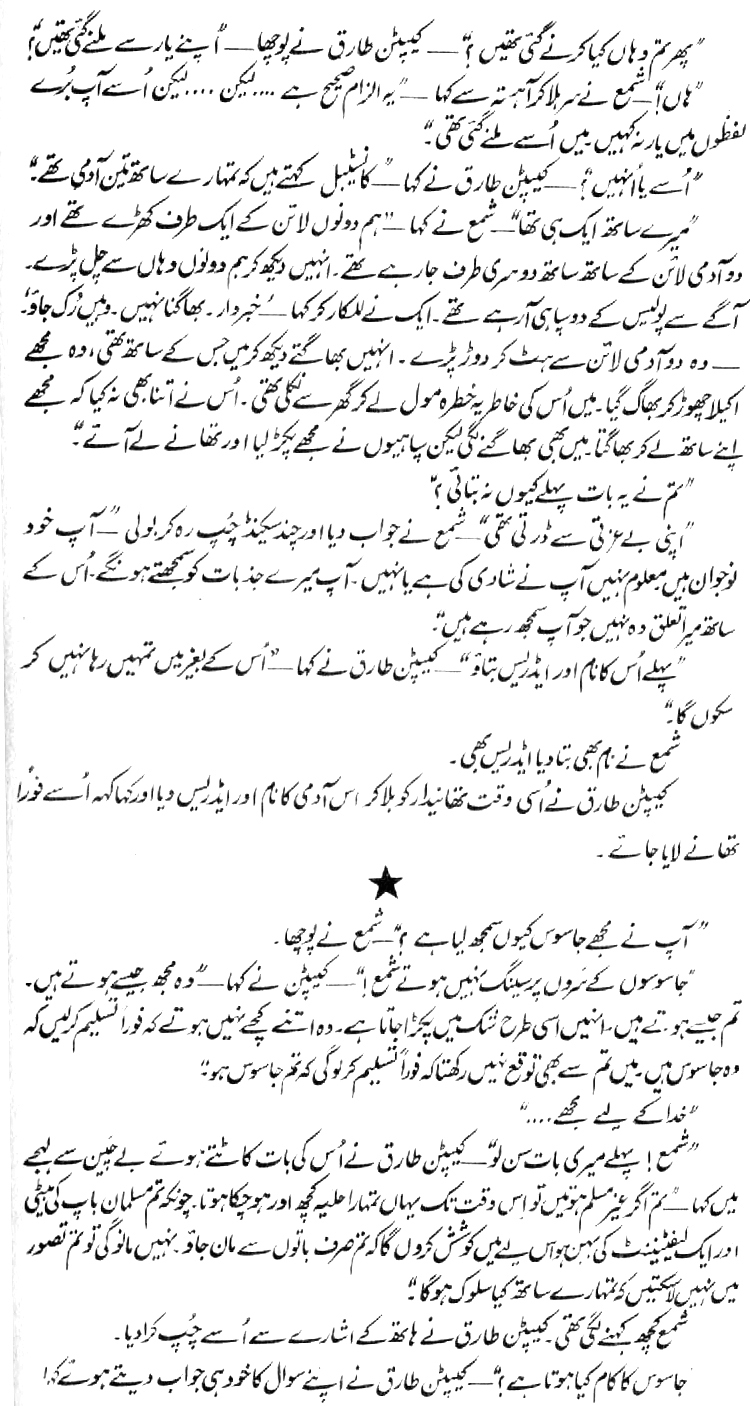 "پھر تم وہاں کیا کرنے گئی تھیں؟" — کیپٹن طارق نے پوچھا — "اپنے یار سے ملنے گئی تھیں؟"
"ہاں!" — شمع نے سر ہلا کر آہستہ سے کہا — "یہ الزام صحیح ہے .... لیکن .... لیکن اُسے آپ بُرے
لفظوں میں یار نہ کہیں۔ میں اُسے ملنے گئی تھی۔"
"اُسے یا اُنہیں؟" — کیپٹن طارق نے کہا — "کانسٹیبل کہتے ہیں کہ تمہارے ساتھ تین آدمی تھے۔"
"میرے ساتھ ایک ہی تھا" — شمع نے کہا — "ہم دونوں لائن کے ایک طرف کھڑے تھے اور
دو آدمی لائن کے ساتھ ساتھ دوسری طرف جا رہے تھے۔ انہیں دیکھ کر ہم دونوں وہاں سے چل پڑے۔
آگے سے پولیس کے دو سپاہی آرہے تھے۔ ایک نے للکار کر کہا — 'خبردار۔ بھاگنا نہیں۔ وہیں رُک جاؤ'
— وہ دو آدمی لائن سے ہٹ کر دوڑ پڑے۔ انہیں بھاگتے دیکھ کر میں جس کے ساتھ تھی، وہ مجھے
اکیلا چھوڑ کر بھاگ گیا۔ میں اُس کی خاطر یہ خطرہ مول لے کر گھر سے نکلی تھی۔ اُس نے اتنا بھی نہ کیا کہ مجھے
اپنے ساتھ لے کر بھاگتا۔ میں بھی بھاگنے لگی لیکن سپاہیوں نے مجھے پکڑ لیا اور تھانے لے آئے۔"
"تم نے یہ بات پہلے کیوں نہ بتائی؟"
"اپنی بے عزتی سے ڈرتی تھی" — شمع نے جواب دیا اور چند سیکنڈ چُپ رہ کر بولی — "آپ خود
نوجوان ہیں معلوم نہیں آپ نے شادی کی ہے یا نہیں۔ آپ میرے جذبات کو سمجھتے ہونگے۔ اُس کے
ساتھ میرا تعلق وہ نہیں جو آپ سمجھ رہے ہیں۔"
"پہلے اُس کا نام اور ایڈریس بتاؤ" — کیپٹن طارق نے کہا — "اُس کے بغیر میں تمہیں رہا نہیں کر
سکوں گا۔"
شمع نے نام بھی بتا دیا ایڈریس بھی۔
کیپٹن طارق نے اُسی وقت تھانیدار کو بلا کر اس آدمی کا نام اور ایڈریس دیا اور کہا کہ اُسے فوراً
تھانے لایا جائے۔
★
"آپ نے مجھے جاسوس کیوں سمجھ لیا ہے؟" — شمع نے پوچھا۔
"جاسوسوں کے سَروں پر سینگ نہیں ہوتے شمع!" — کیپٹن نے کہا — "وہ مجھ جیسے ہوتے ہیں۔
تم جیسے ہوتے ہیں۔ انہیں اسی طرح شک میں پکڑا جاتا ہے۔ وہ اتنے کچے نہیں ہوتے کہ فوراً تسلیم کرلیں کہ
وہ جاسوس ہیں۔ میں تم سے بھی توقع نہیں رکھتا کہ فوراً تسلیم کر لوگی کہ تم جاسوس ہو۔"
"خدا کے لیے مجھے ...."
"شمع! پہلے میری بات سن لو" — کیپٹن طارق نے اُس کی بات کاٹتے ہوئے بے چین سے لہجے
میں کہا — "تم اگر غیر مسلم ہوتیں تو اِس وقت تک یہاں تمہارا حلیہ کچھ اور ہو چکا ہوتا۔ چونکہ تم مسلمان باپ کی بیٹی
اور ایک لیفٹیننٹ کی بہن ہو اس لیے میں کوشش کروں گا کہ تم صرف باتوں سے مان جاؤ۔ نہیں مانوگی تو تم تصور
میں نہیں لاسکتیں کہ تمہارے ساتھ کیا سلوک ہوگا۔"
شمع کچھ کہنے لگی تھی۔ کیپٹن طارق نے ہاتھ کے اشارے سے اُسے چُپ کرا دیا۔
"جاسوس کا کام کیا ہوتا ہے؟" — کیپٹن طارق نے اپنے سوال کا خود ہی جواب دیتے ہوئے کہا